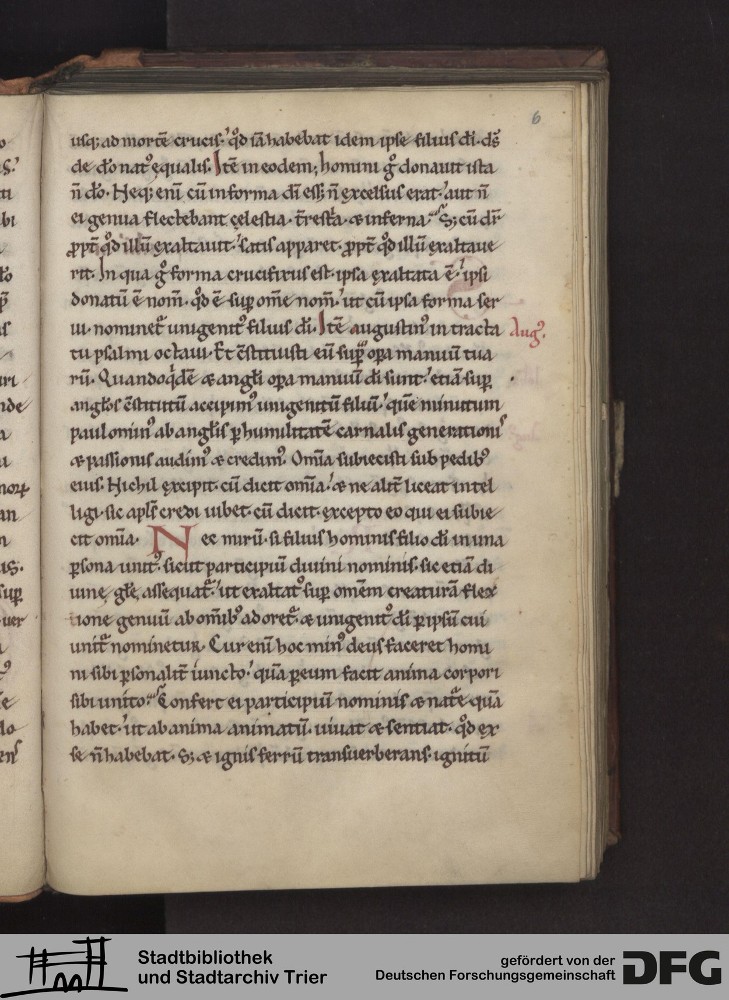 6
usq; ad mortē crucis. qđ iā habebat idem ipse filius dī. ds̄
de dō natꝰ ęqualis. Itē in eodem; homini gͦ donauit ista
n̄ dō. Neq; eni cū in forma dī ess& n̄ excelsus erat. aut n̄
ei genua flectebant cęlestia. t̄restͣa. & inferna. S; cū dr̄
ꝓpt̄ qđ illū exaltauit. satis apparet. ꝓpt̄ qđ illū exaltaue
rit. In qua gͦ forma crucifixus est. ipsa exaltata ē. ipsi
donatū ē nom̄. qđ ē suꝑ om̄e nom̄. ut cū ipsa forma ser
ui. nominet̄ unigenitꝰ filius dī. Itē augustinꝰ in tracta
Augꝰ.
tu psalmi octaui. Et c̄stituisti eū suꝑ opa manuū tua
rū. Quandoqđē & angli opa manuū dī sunt. etiā suꝑ
anglos c̄stitutū accipimꝰ unigenitū filiū. quē minutum
paulominꝰ ab anglis ꝑ humilitatē carnalis generationis
& passionis audimꝰ & credimꝰ. Om̄ia subiecisti sub pedibꝰ
eius. Nichil excipit. cū dicit om̄ia. & ne alit̄ liceat intel
ligi. sic apls̄ credi iubet. cū dicit. excepto eo qui ei subie
cit om̄ia. Nec mirū. si filius hominis filio dī in una
ꝑsona unitꝰ. sicut participiū diuini nominis. sic etiā di
uinę. glę. assequat̄. ut exaltatꝰ suꝑ omēm creaturā flex
ione genuū ab om̄ibꝰ adoret̄. & unigenitꝰ dī ꝑ ipsū cui
unit̄ nominetur. Cur enī hoc minꝰ deus faceret homi
ni sibi ꝑsonalit̄ iuncto. quā ꝑ eum facit anima corpori
sibi unito. Confert ei participiū nominis & nat̄e quā
habet. ut ab anima animatū. uiuat & sentiat. qđ ex
se n̄ habebat. S; & ignis ferrū transuerberans. ignitū
Stadtbibliothek
und Stadtarchiv Trier
gefördert von der
Deutschen Forschungsgemeinschaft
DFG